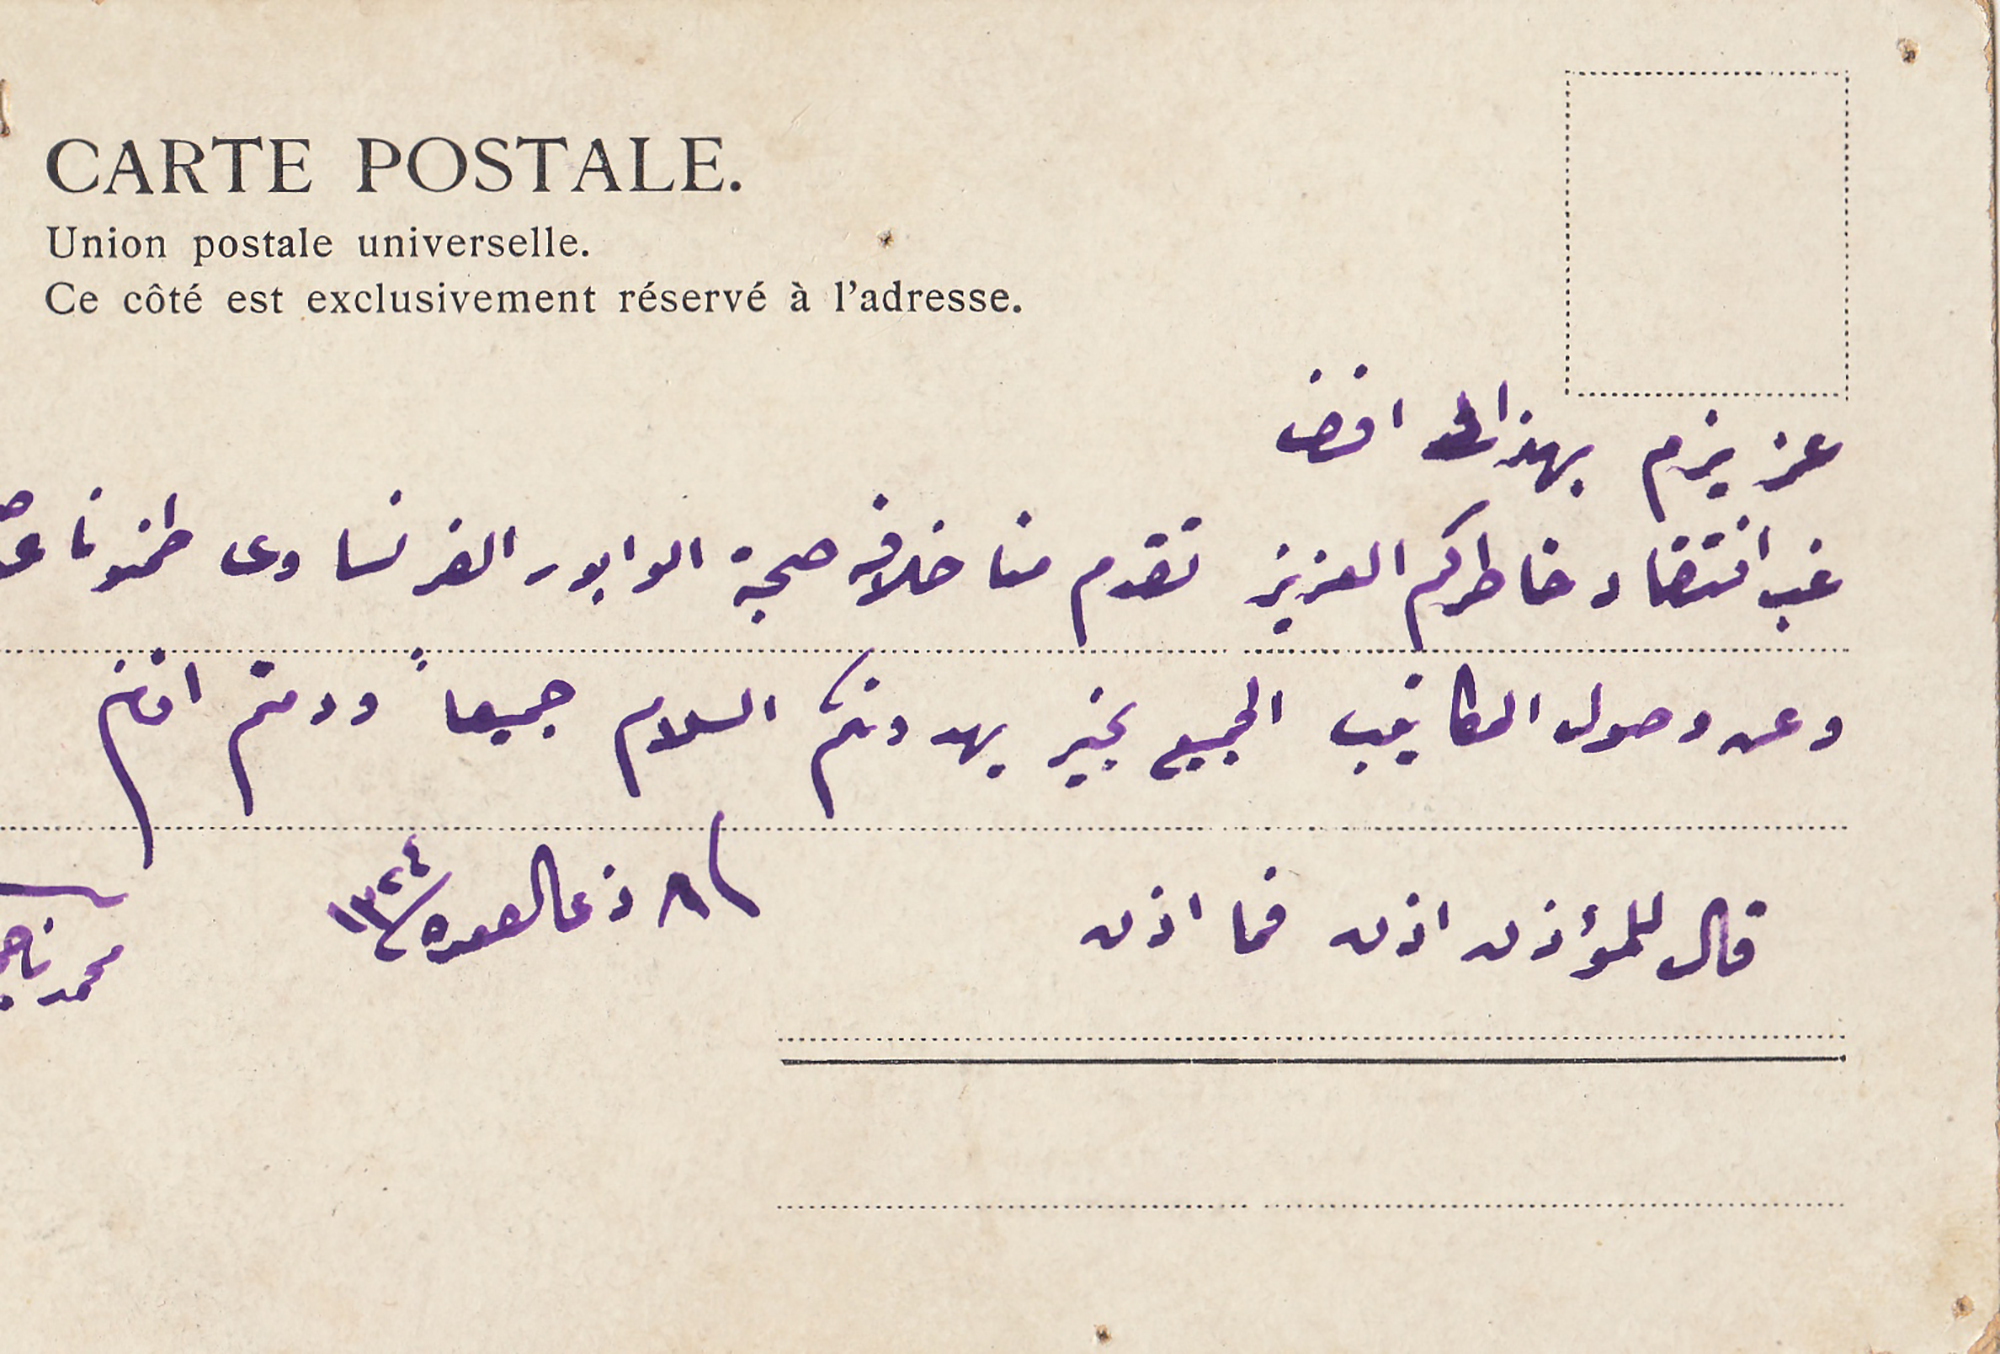 CARTE POSTALE.
Union postale universelle.
Ce côté est exclusivement réservé à l'adresse.
عزيزم
غب افتقاد خاطركم العزيز تقدم منا خلافه صحبة الوابور الفرنساوى طمنونا
وعن وصول المكاتيب الجميع بخير يهدونكم السلام جميعاً ودمتم افندم
قال للمؤذن اذن فما اذن
٨ ذى القعده ١٣٢٤
محمد